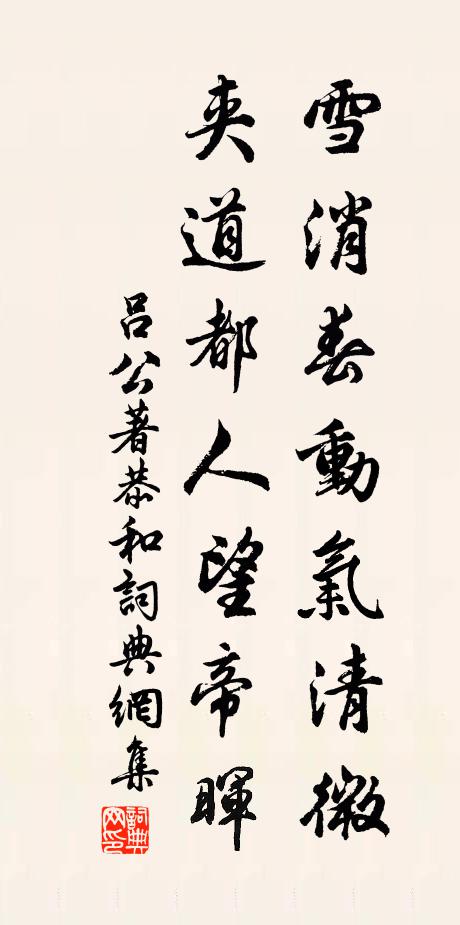 雪消春動氣清微
夾道都人望帝暉
呂公著恭和詞典網集
詞典網印